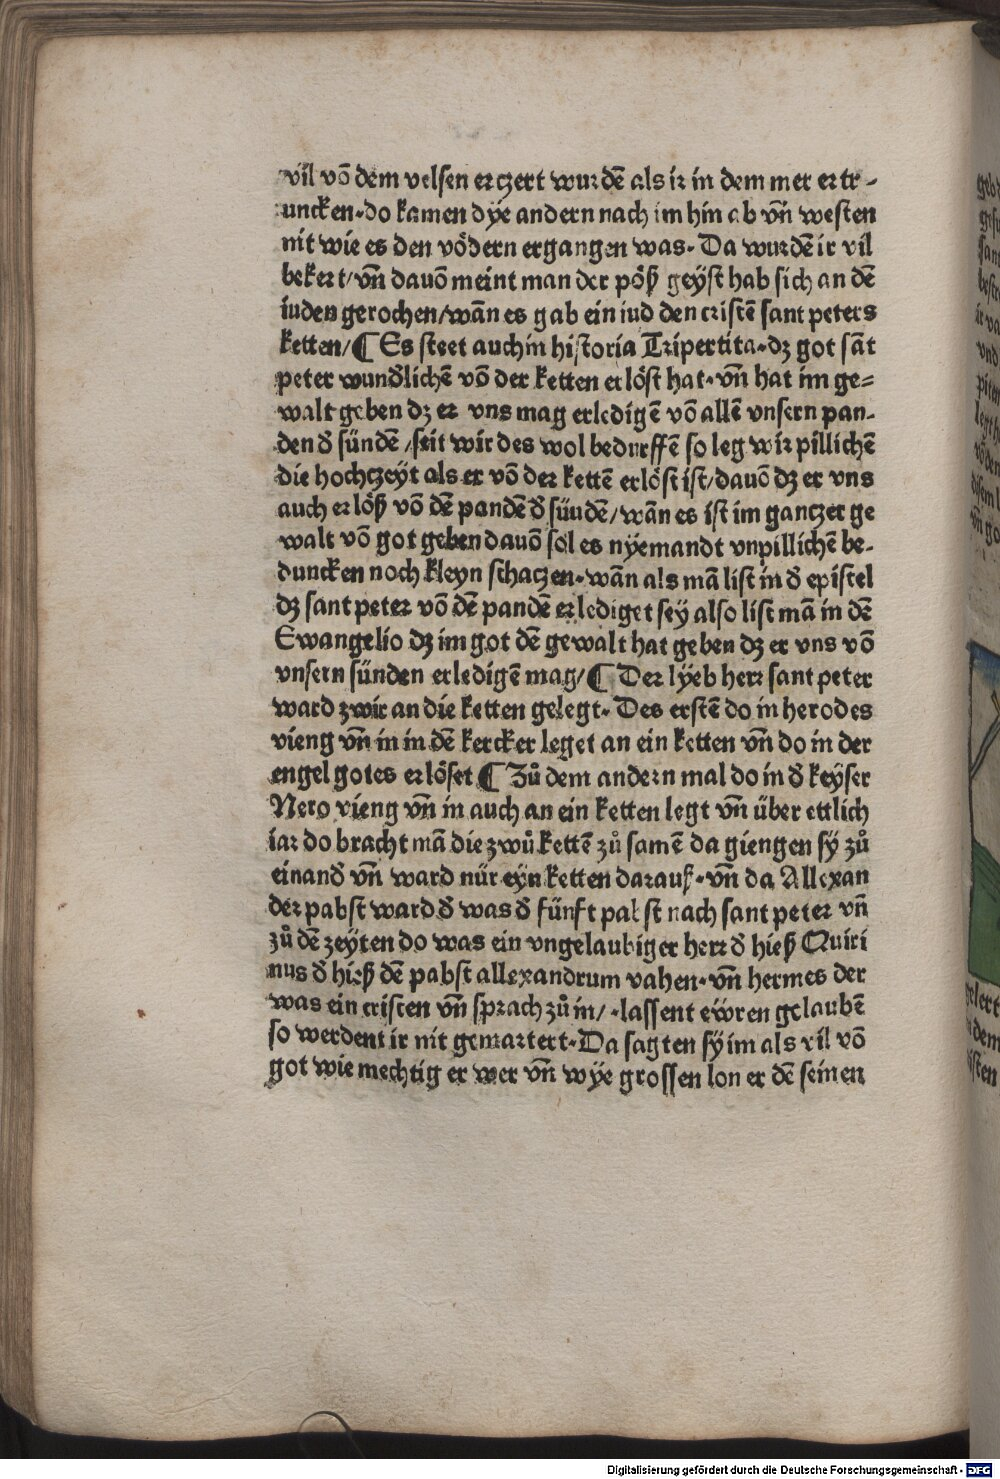 vil võ dem velsen erczert wurdẽ als ir in dem mer ertr-
uncken·do kamen dÿe andern nach im hin ab vñ westen
nit wie es den vödern ergangen was· Da wurdẽ ir vil
bekert/vñ dauõ meint man der pöß geÿst hab sich an dẽ
iuden gerochen/wãn es gab ein iud den cristẽ sant peters
ketten/¶ Es steet auch in historia Tripertita·dʒ got sãt
peter wunđlichẽ võ der ketten erlöst hat·vñ hat im ge=
walt geben dʒ er vns mag erledigẽ võ allẽ vnsern pan-
den đ sündẽ/seit wir des wol bedurffẽ so leg wir pillichẽ
die hochczeÿt als er võ der kettẽ erlöst ist/dauõ dʒ er vns
auch erlöß võ dẽ pandẽ đ süudẽ/wãn es ist im ganczer ge
walt võ got geben dauõ sol es nÿemandt vnpillichẽ be-
duncken noch kleyn schaczen·wãn als mã list in đ epistel
dʒ sant peter võ dẽ pandẽ erlediget seÿ also list mã in dẽ
Ewangelio dʒ im got dẽ gewalt hat geben dʒ er vns võ
vnsern sünden erledigẽ mag/¶ Der lÿeb herr sant peter
ward zwir an die ketten gelegt· Des erstẽ do in herodes
vieng vñ in in dẽ kercker leget an ein ketten vñ do in der
engel gotes erlöset ¶ Zů dem andern mal do in đ keyser
Nero vieng vñ in auch an ein ketten legt vñ über ettlich
iar do bracht mã die zwů kettẽ zů samẽ da giengen sÿ zů
einanđ vñ ward nür eyn ketten darauß·vñ da Allexan
der pabst ward đ was đ fünft pabst nach sant peter vñ
zů dẽ zeÿten do was ein vngelaubiger herr đ hieß Quiri
nus đ hieß dẽ pabst allexandrum vahen·vñ hermes der
was ein cristen vñ sprach zů in/·lassent ewren gelaubẽ
so werdent ir nit gemartert·Da sagten sÿ im als vil võ
got wie mechtig er wer vñ wÿe grossen lon er dẽ seinen
Digitalisierung gefördert durch die Deutsche Forschungsgemeinschaft - DFG